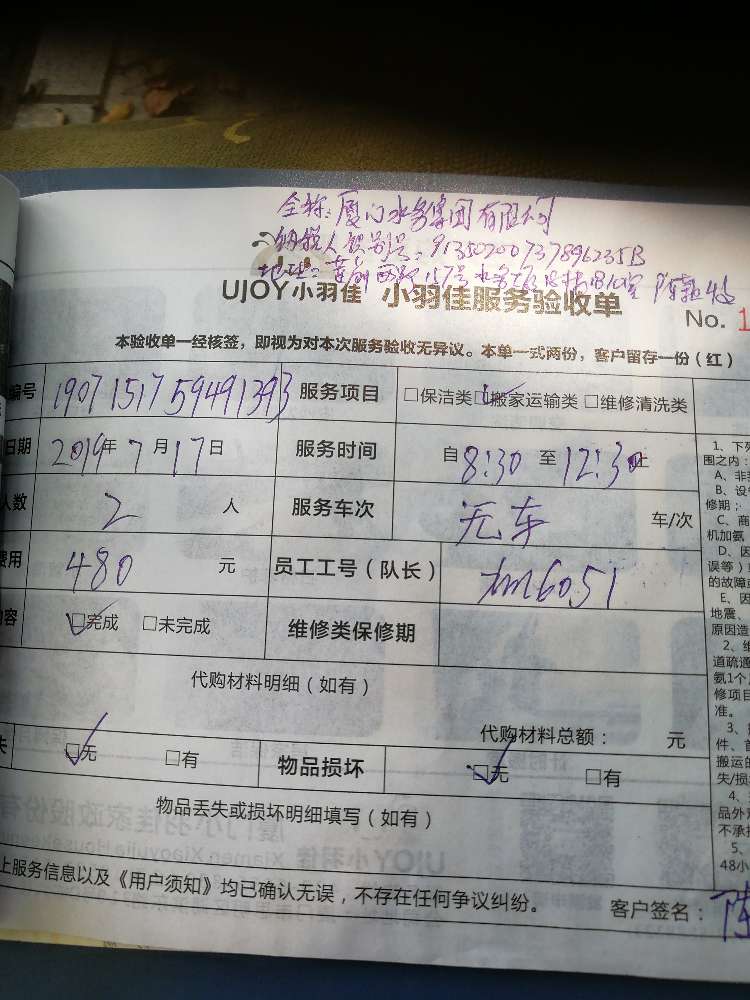 全称:厦门水务集团有限公司
纳税人识别号:91350200737896235B
地址:
UJOY小羽佳 小羽佳服务验收单
No. 1
本验收单一经核签，即视为对本次服务验收无异议。本单一式两份，客户留存一份（红）
编号 1907151759491393 服务项目 □保洁类 □搬家运输类 □维修清洗类
日期 2019年7月17日 服务时间 自8:30至12:30止
人数 2 人 服务车次 无车 车/次
费用 480 元 员工工号（队长） xm6051
内容 □完成 □未完成 维修类保修期
代购材料明细（如有）
代购材料总额： 元
失 □无 □有 物品损坏 □无 □有
物品丢失或损坏明细填写（如有）
上服务信息以及《用户须知》均已确认无误，不存在任何争议纠纷。 客户签名：陈
1、下列
围之内：
A、非
B、设
修期；
C、商
机加氨
D、因
误等）
的故障或
E、因
地震、
原因造
2、维
道疏通
氨1个月
修项目
准。
3、
件、首
搬运的
失/损
4、
品外观
不承担
5、
48小